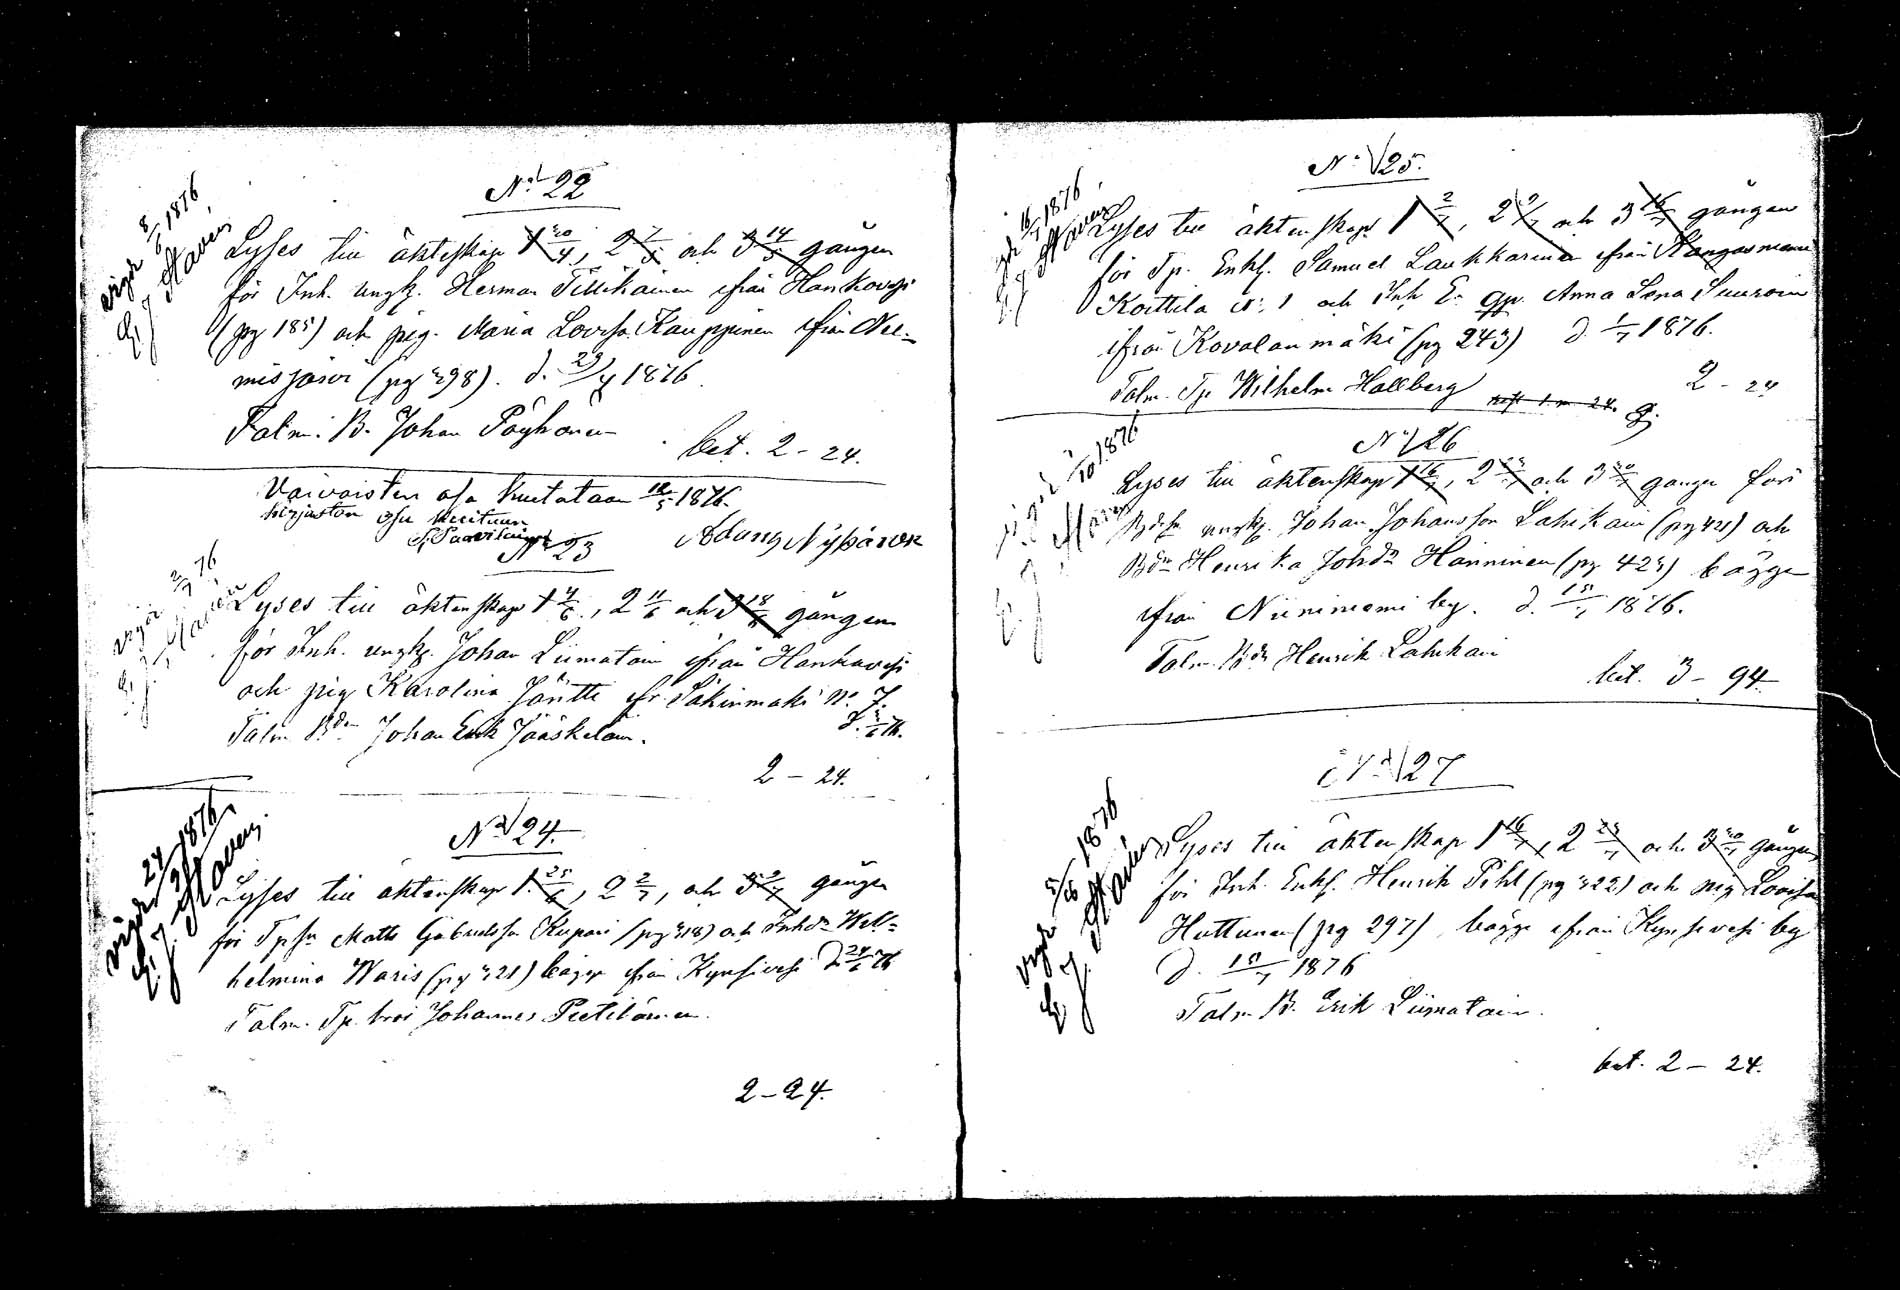 No 22
vigde 8/6 1876,
E. J. Stavén
Lyses till äkteskap 1 30/4, 2 7/5 och 3 14/5 gången
för Inh. ungk. Herman Tillikainen ifrån Hankavesi
(pg 185) och pig. Maria Lovisa Kauppinen ifrån Nee-
misjärvi (pg 398). d. 29/4 1876
Talm. B. Johan Pöyhönen
bet. 2 - 24.
Vaivaisten osa kuitataan 12/5 1876.
kirjaston osa kuitataan
Adam Nypånen
No 23
vigde 2/7 76
E. J. Stavén
Lyses till äktenskap 1 4/6, 2 11/6 och 3 18/6 gången
för Inh. ungk. Johan Liimatain ifrån Hankavesi
och pig Karolina Jäntti fr. Säkinmäki No. 7.
d. 3/6 76.
Talm Bdn Johan Erik Jääskeläin.
2 - 24.
No 24.
vigde 24/9 1876
E. J. Staven.
Lyses till äktenskap 1. 25/6, 2 2/7, och 3 9/7 gången
för Tpsn Matts Gabrielsson Kupari (pg 318) och Inhdr Wil-
helmina Waris (pg 321) bägge från Kynsivesi d. 24/6 76
Talm. Tp. bror Johannes Pietiläinen.
2 - 24.
No 25.
16/7 1876,
E. J. Stavén
Lyses till äktenskap 1 2/7, 2 9/7 och 3 16/7 gången
för Tp. Enkl. Samuel Laukkarinen ifrån Kangasniemi
Koittila No. 1 och Inh E. Anna Lena Suuroin
ifrån Kovalanmäki (pg 243) d. 1/7 1876.
Talm. Tp Wilhelm Hallberg
2 - 24
No 26
/10 1876
E. J. Stavén
Lyses till äktenskap 1 16/7, 2 23/7 och 3 30/7 gången för
Bdsn ungk. Johan Johansson Lahikain (pg 421) och
Bdr Henrika Johdr Hänninen (pg 423) bägge
ifrån Niinimämi by. d. 15/7 1876.
Talm. Bdn Henrik Lahikain
bet. 3 - 94.
No 27
vigde 5/8 1876
E. J. Stavén
Lyses till äktenskap 1 16/7, 2 23/7 och 3 30/7 gången
för Inh. Enkl. Henrik Pihl (pg 322) och pig Lovisa
Huttunen (pg 297), bägge ifrån Kynsivesi by
d. 15/7 1876
Talm B. Erik Liimatain.
bet. 2 - 24.